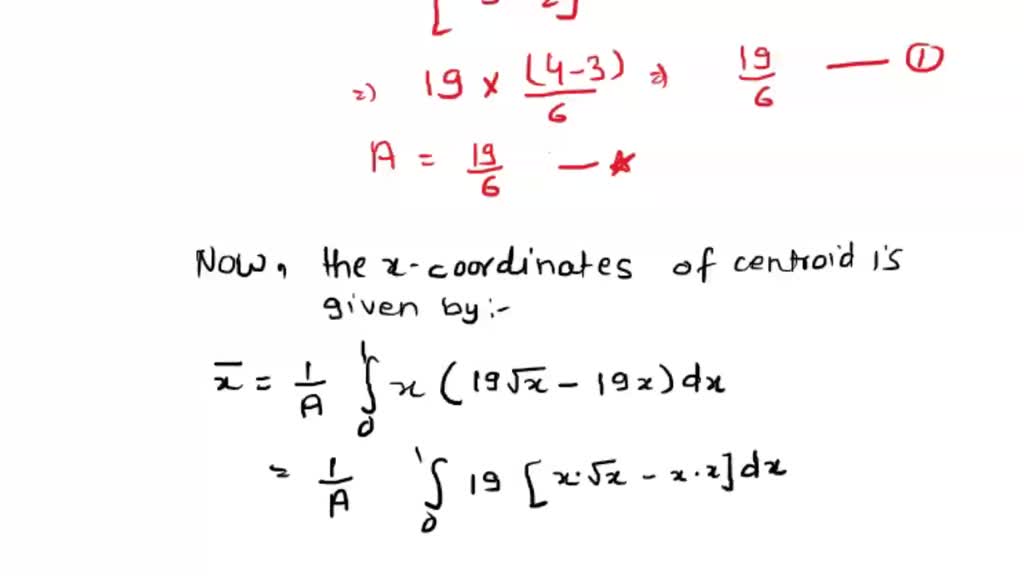 =) 19 × (4-3)/6 =) 19/6 — ①
A = 19/6 — ★
Now, the x-coordinates of centroid is
given by:-
x̄ = 1/A ∫₀¹ x (19√x - 19x) dx
= 1/A ∫₀¹ 19 [x·√x - x·x] dx